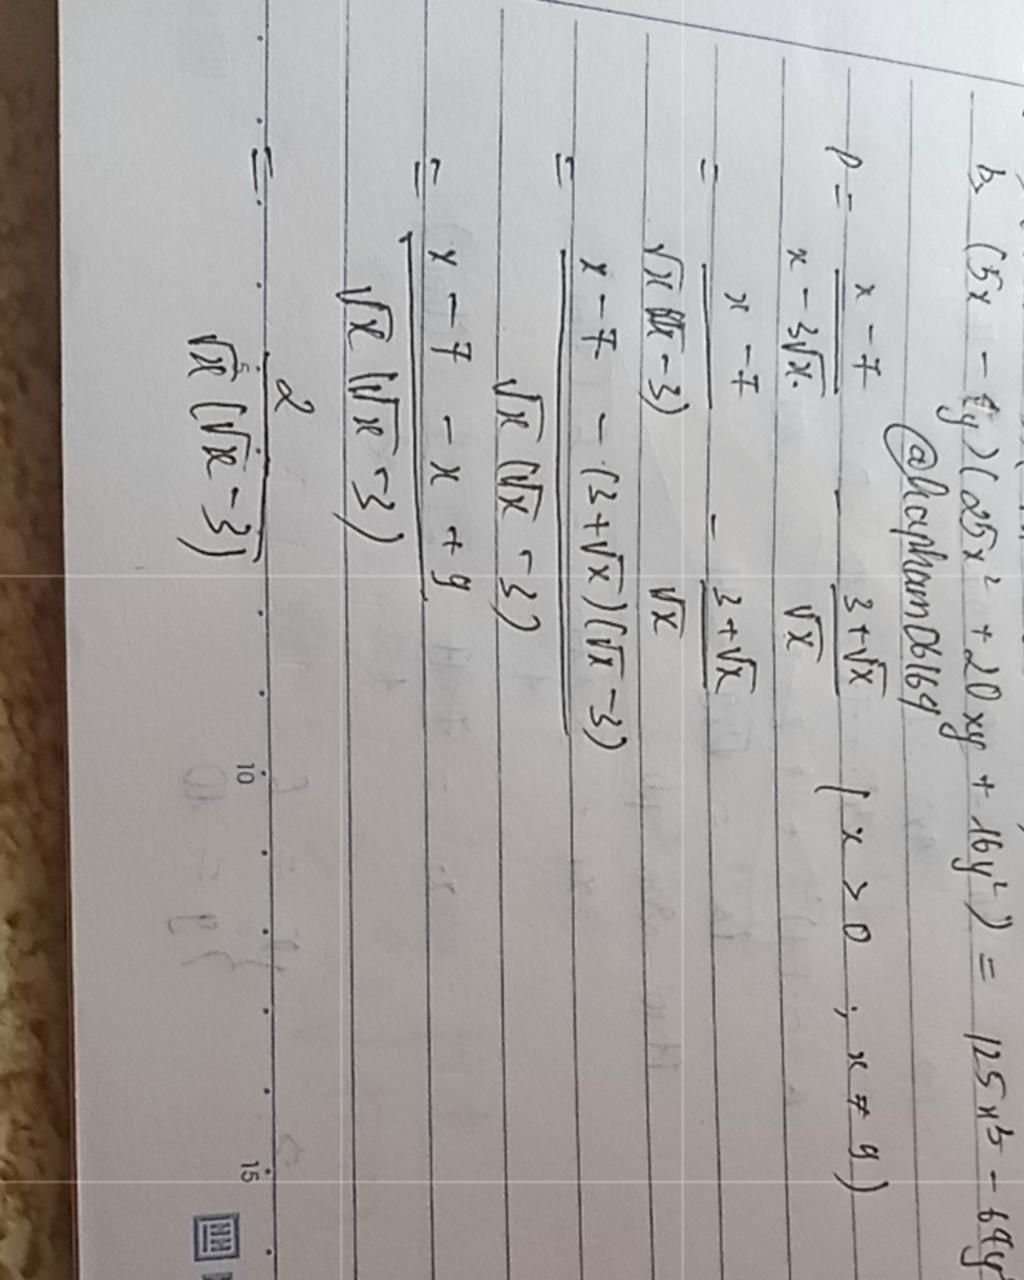 b, (5x - 4y)(25x² + 20xy + 16y²) = 125x³ - 64y
@hapham06169
P = \frac{x - 7}{x - 3√x} - \frac{3 + √x}{√x} (x > 0 ; x ≠ 9)
= \frac{x - 7}{√x(√x - 3)} - \frac{3 + √x}{√x}
= \frac{x - 7 - (3 + √x)(√x - 3)}{√x(√x - 3)}
= \frac{x - 7 - x + 9}{√x(√x - 3)}
= \frac{2}{√x(√x - 3)}
5 10 15